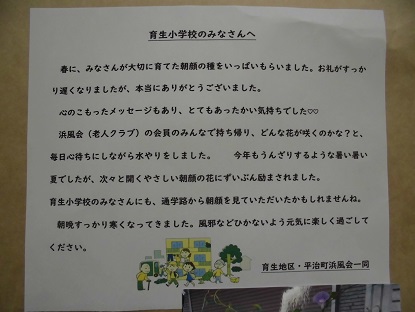 育生小学校のみなさんへ
春に、みなさんが大切に育てた朝顔の種をいっぱいもらいました。お礼がすっか
り遅くなりましたが、本当にありがとうございました。
心のこもったメッセージもあり、とてもあったかい気持ちでした♡♡
浜風会（老人クラブ）の会員のみんなで持ち帰り、どんな花が咲くのかな？と、
毎日心待ちにしながら水やりをしました。　今年もうんざりするような暑い暑い
夏でしたが、次々と開くやさしい朝顔の花にずいぶん励まされました。
育生小学校のみなさんにも、通学路から朝顔を見ていただいたかもしれませんね。
朝晩すっかり寒くなってきました。風邪などひかないよう元気に楽しく過ごして
ください。
育生地区・平治町浜風会一同